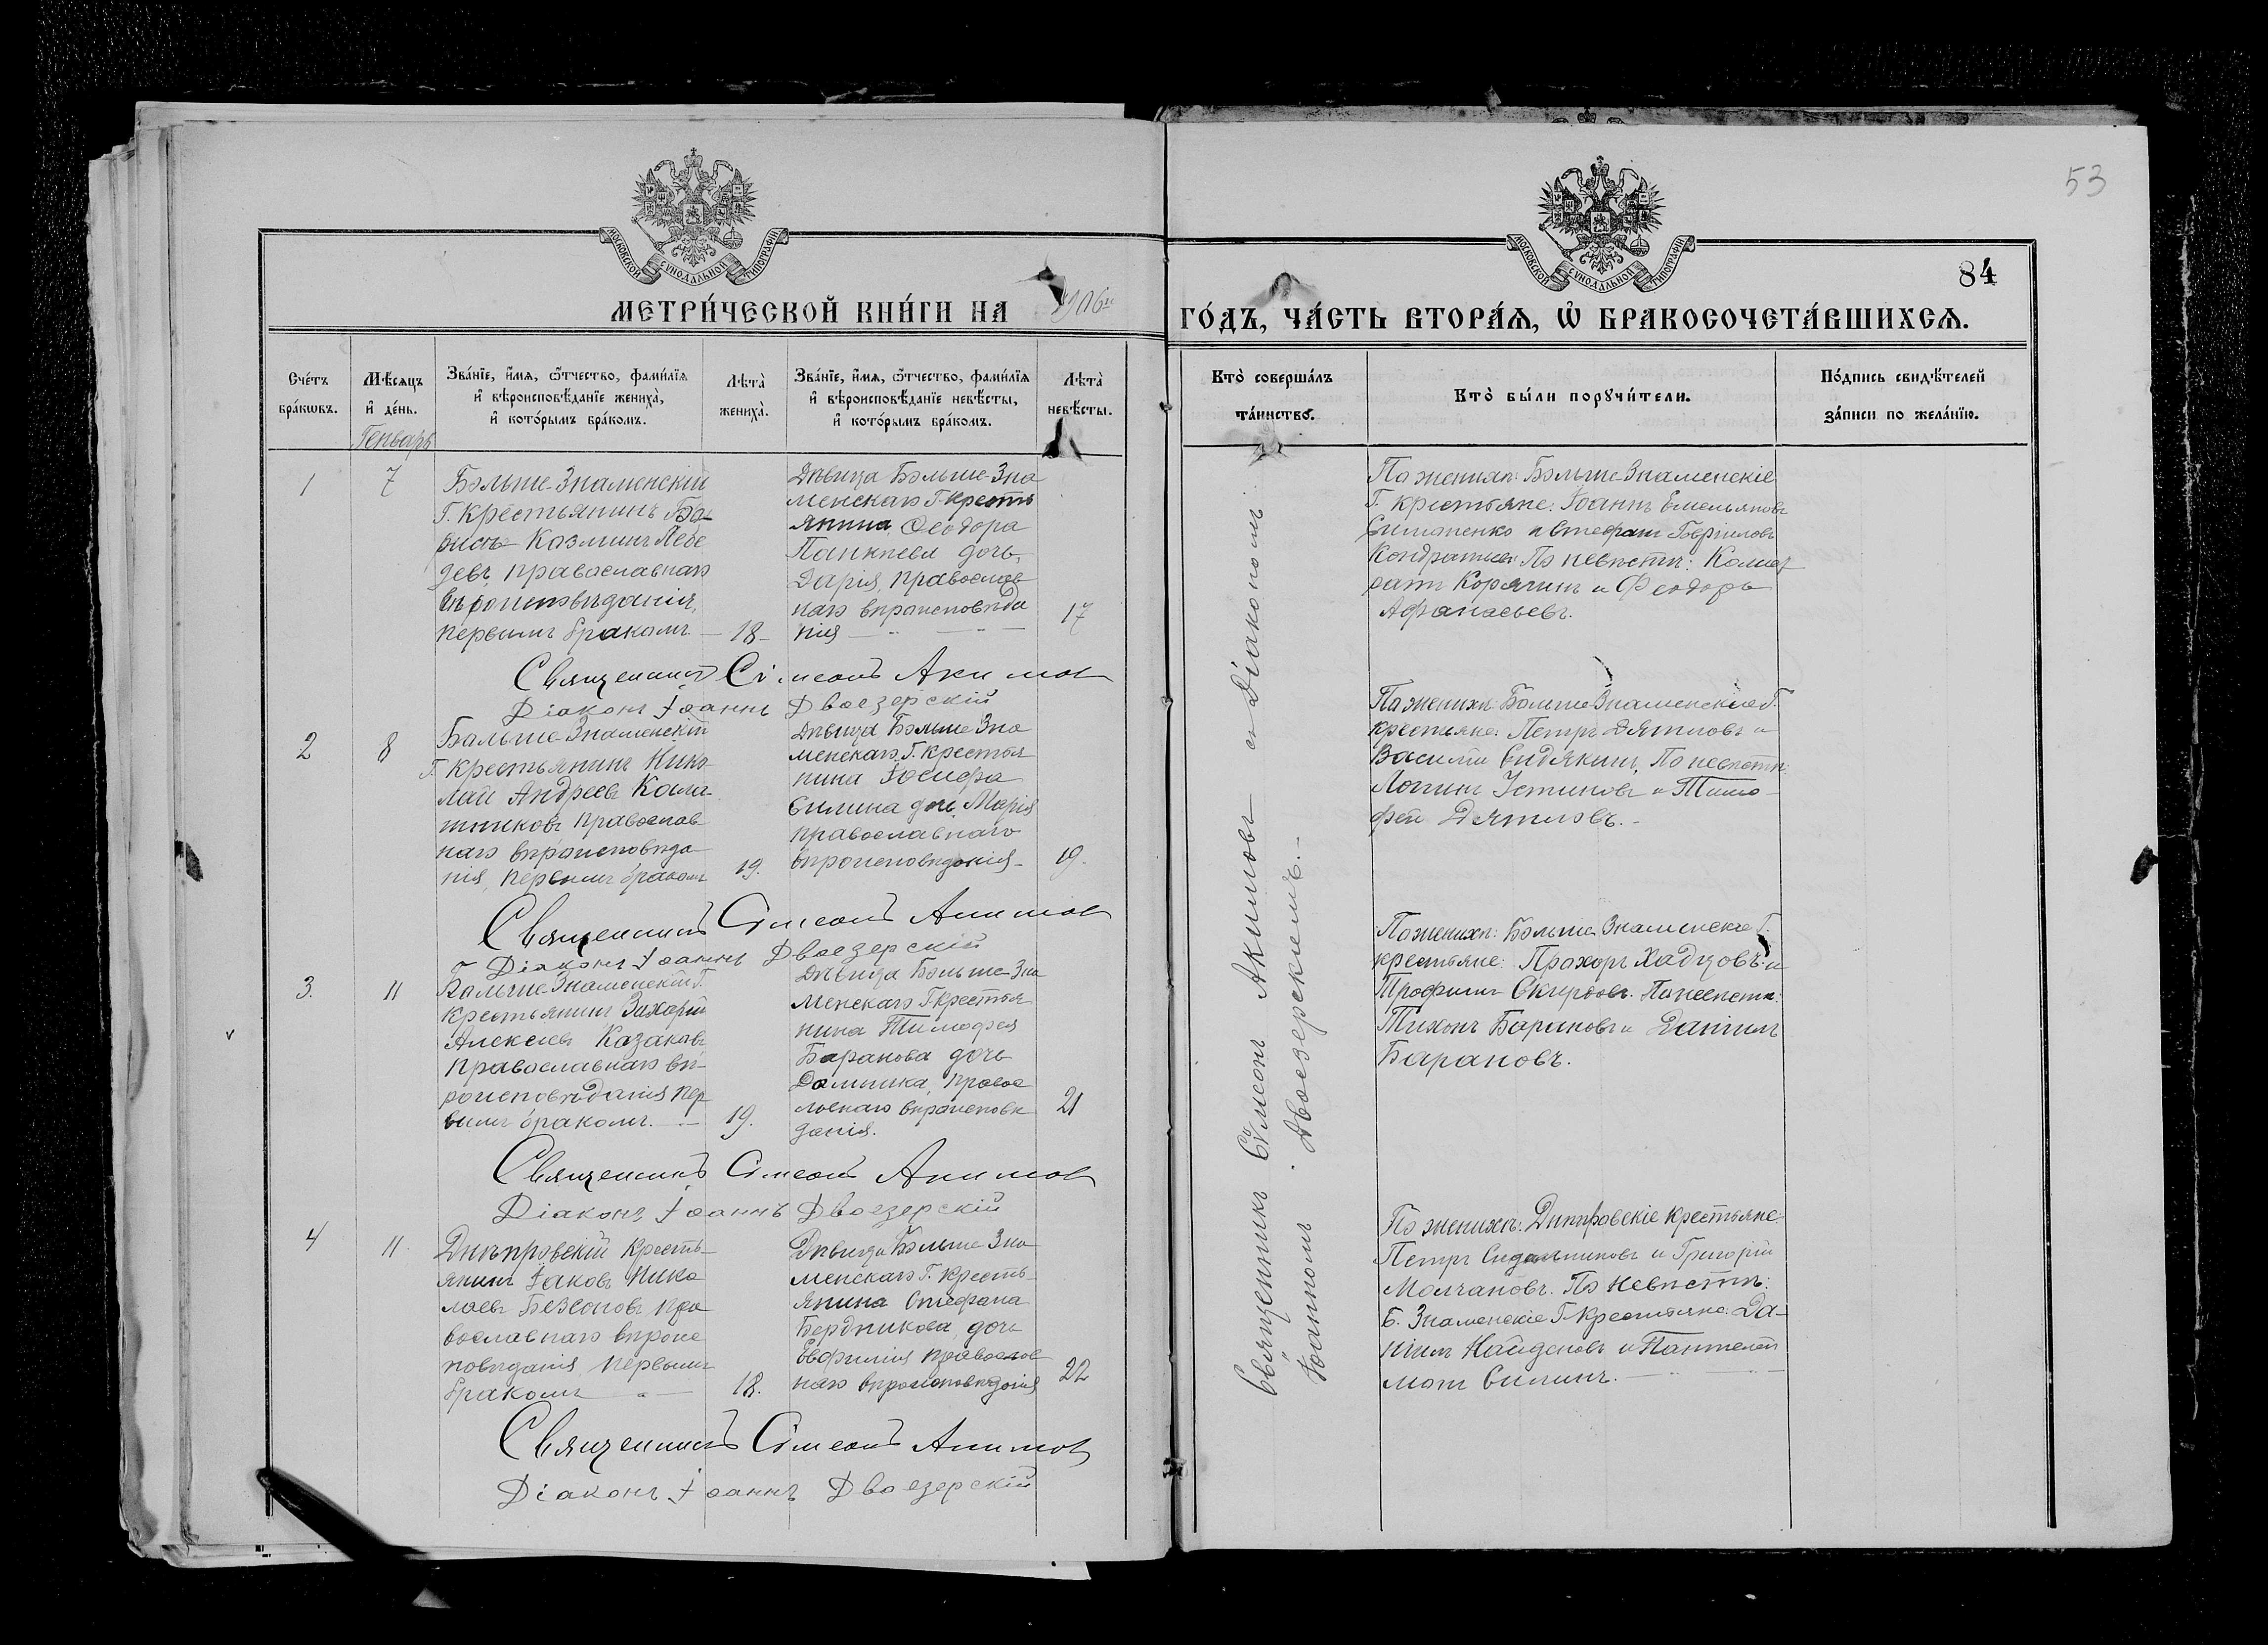 53
84
МОСКОВСКОЙ СѴНОДАЛЬНОЙ ТИПОГРАФІИ
МОСКОВСКОЙ СѴНОДАЛЬНОЙ ТИПОГРАФІИ
МЕТРИ́ЧЕСКОЙ КНИ́ГИ НА 1906 ГО́ДЪ, ЧА́СТЬ ВТОРА́Ѧ, Ѡ҆ БРАКОСОЧЕТА́ВШИХСѦ.
Сче́тъ бра́кѡвъ.
Мѣ́сяцъ и҆ де́нь.
Зва́нїе, и҆́мѧ, ѻ҆́тчество, фами́лїѧ и҆ вѣроисповѣ́данїе жениха̀, и҆ кото́рымъ бра́комъ.
Лѣта̀ жениха̀.
Зва́нїе, и҆́мѧ, ѻ҆́тчество, фами́лїѧ и҆ вѣроисповѣ́данїе невѣ́сты, и҆ кото́рымъ бра́комъ.
Лѣта̀ невѣ́сты.
Кто̀ соверша́лъ та́инство.
Кто̀ бы́ли порꙋчи́тели.
По́дпись свидѣ́телей за́писи по жела́нїю.
Генварь
1
7
Больше-Знаменскій
Г. крестьянинъ Бо
рисъ Козминъ Лебе
девъ, православнаго
вѣроисповѣданія,
первымъ бракомъ
18
Дѣвица Больше-Зна
менскаго Г. кресть
янина Ѳеодора
дочь
Дарія, православ
наго вѣроисповѣда
нія
17
По женихѣ: Больше Знаменскіе
Г. крестьяне: Іоаннъ Емельяновъ
и Стефанъ
По невѣстѣ:
Корякинъ и Ѳеодоръ
Афанасьевъ.
Священникъ Сімеонъ Акимовъ
Діаконъ Іоаннъ Двоезерскій
2
8
Больше-Знаменскій
Г. крестьянинъ Нико
лай Андреевъ Кола
шниковъ православ
наго вѣроисповѣда
нія, первымъ бракомъ
19.
Дѣвица Больше Зна
менскаго Г. крестья
нина Іосифа
Силина дочь, Марія
православнаго
вѣроисповѣданія
19.
По женихѣ: Больше Знаменскіе Г.
крестьяне: Петръ Дятловъ и
Василій Сидякинъ. По невѣстѣ:
Логинъ Устиновъ и Тимо
фей Дятловъ.
Священникъ Сімеонъ Акимовъ
Діаконъ Іоаннъ Двоезерскій
3.
11
Больше-Знаменскій Г.
крестьянинъ Захарій
Алексіевъ Казаковъ
православнаго вѣ-
роисповѣданія пер
вымъ бракомъ.
19.
Дѣвица Больше-Зна
менскаго Г. крестья
нина Тимофея
Баранова дочь
Домника, правос
лавнаго вѣроисповѣ
данія.
21
По женихѣ: Больше Знаменскіе Г.
крестьяне: Прохоръ Хадцовъ и
Трофимъ Скирдовъ. По невѣстѣ:
Тихонъ Барановъ и Даніилъ
Барановъ.
Священникъ Сімеонъ Акимовъ
Діаконъ Іоаннъ Двоезерскій
4
11.
Днѣпровскій кресть-
янинъ Іаковъ Нико
лаевъ Безсоновъ пра
вославнаго вѣроис
повѣданія, первымъ
бракомъ
18.
Дѣвица Больше Зна
менскаго Г. кресть-
янина Стефана
Бердникова дочь
Евфимія православ
наго вѣроисповѣданія
22
По женихѣ: Днѣпровскіе крестьяне
Петръ и Григорій
Молчановъ. По невѣстѣ:
Б. Знаменскіе Г. крестьяне: Да-
ніилъ Найденовъ и Пантелей
монъ Силинъ.
Священникъ Сімеонъ Акимовъ
Діаконъ Іоаннъ Двоезерскій
Священникъ Сѵмеонъ Акимовъ съ Діакономъ
Іоанномъ Двоезерскимъ.